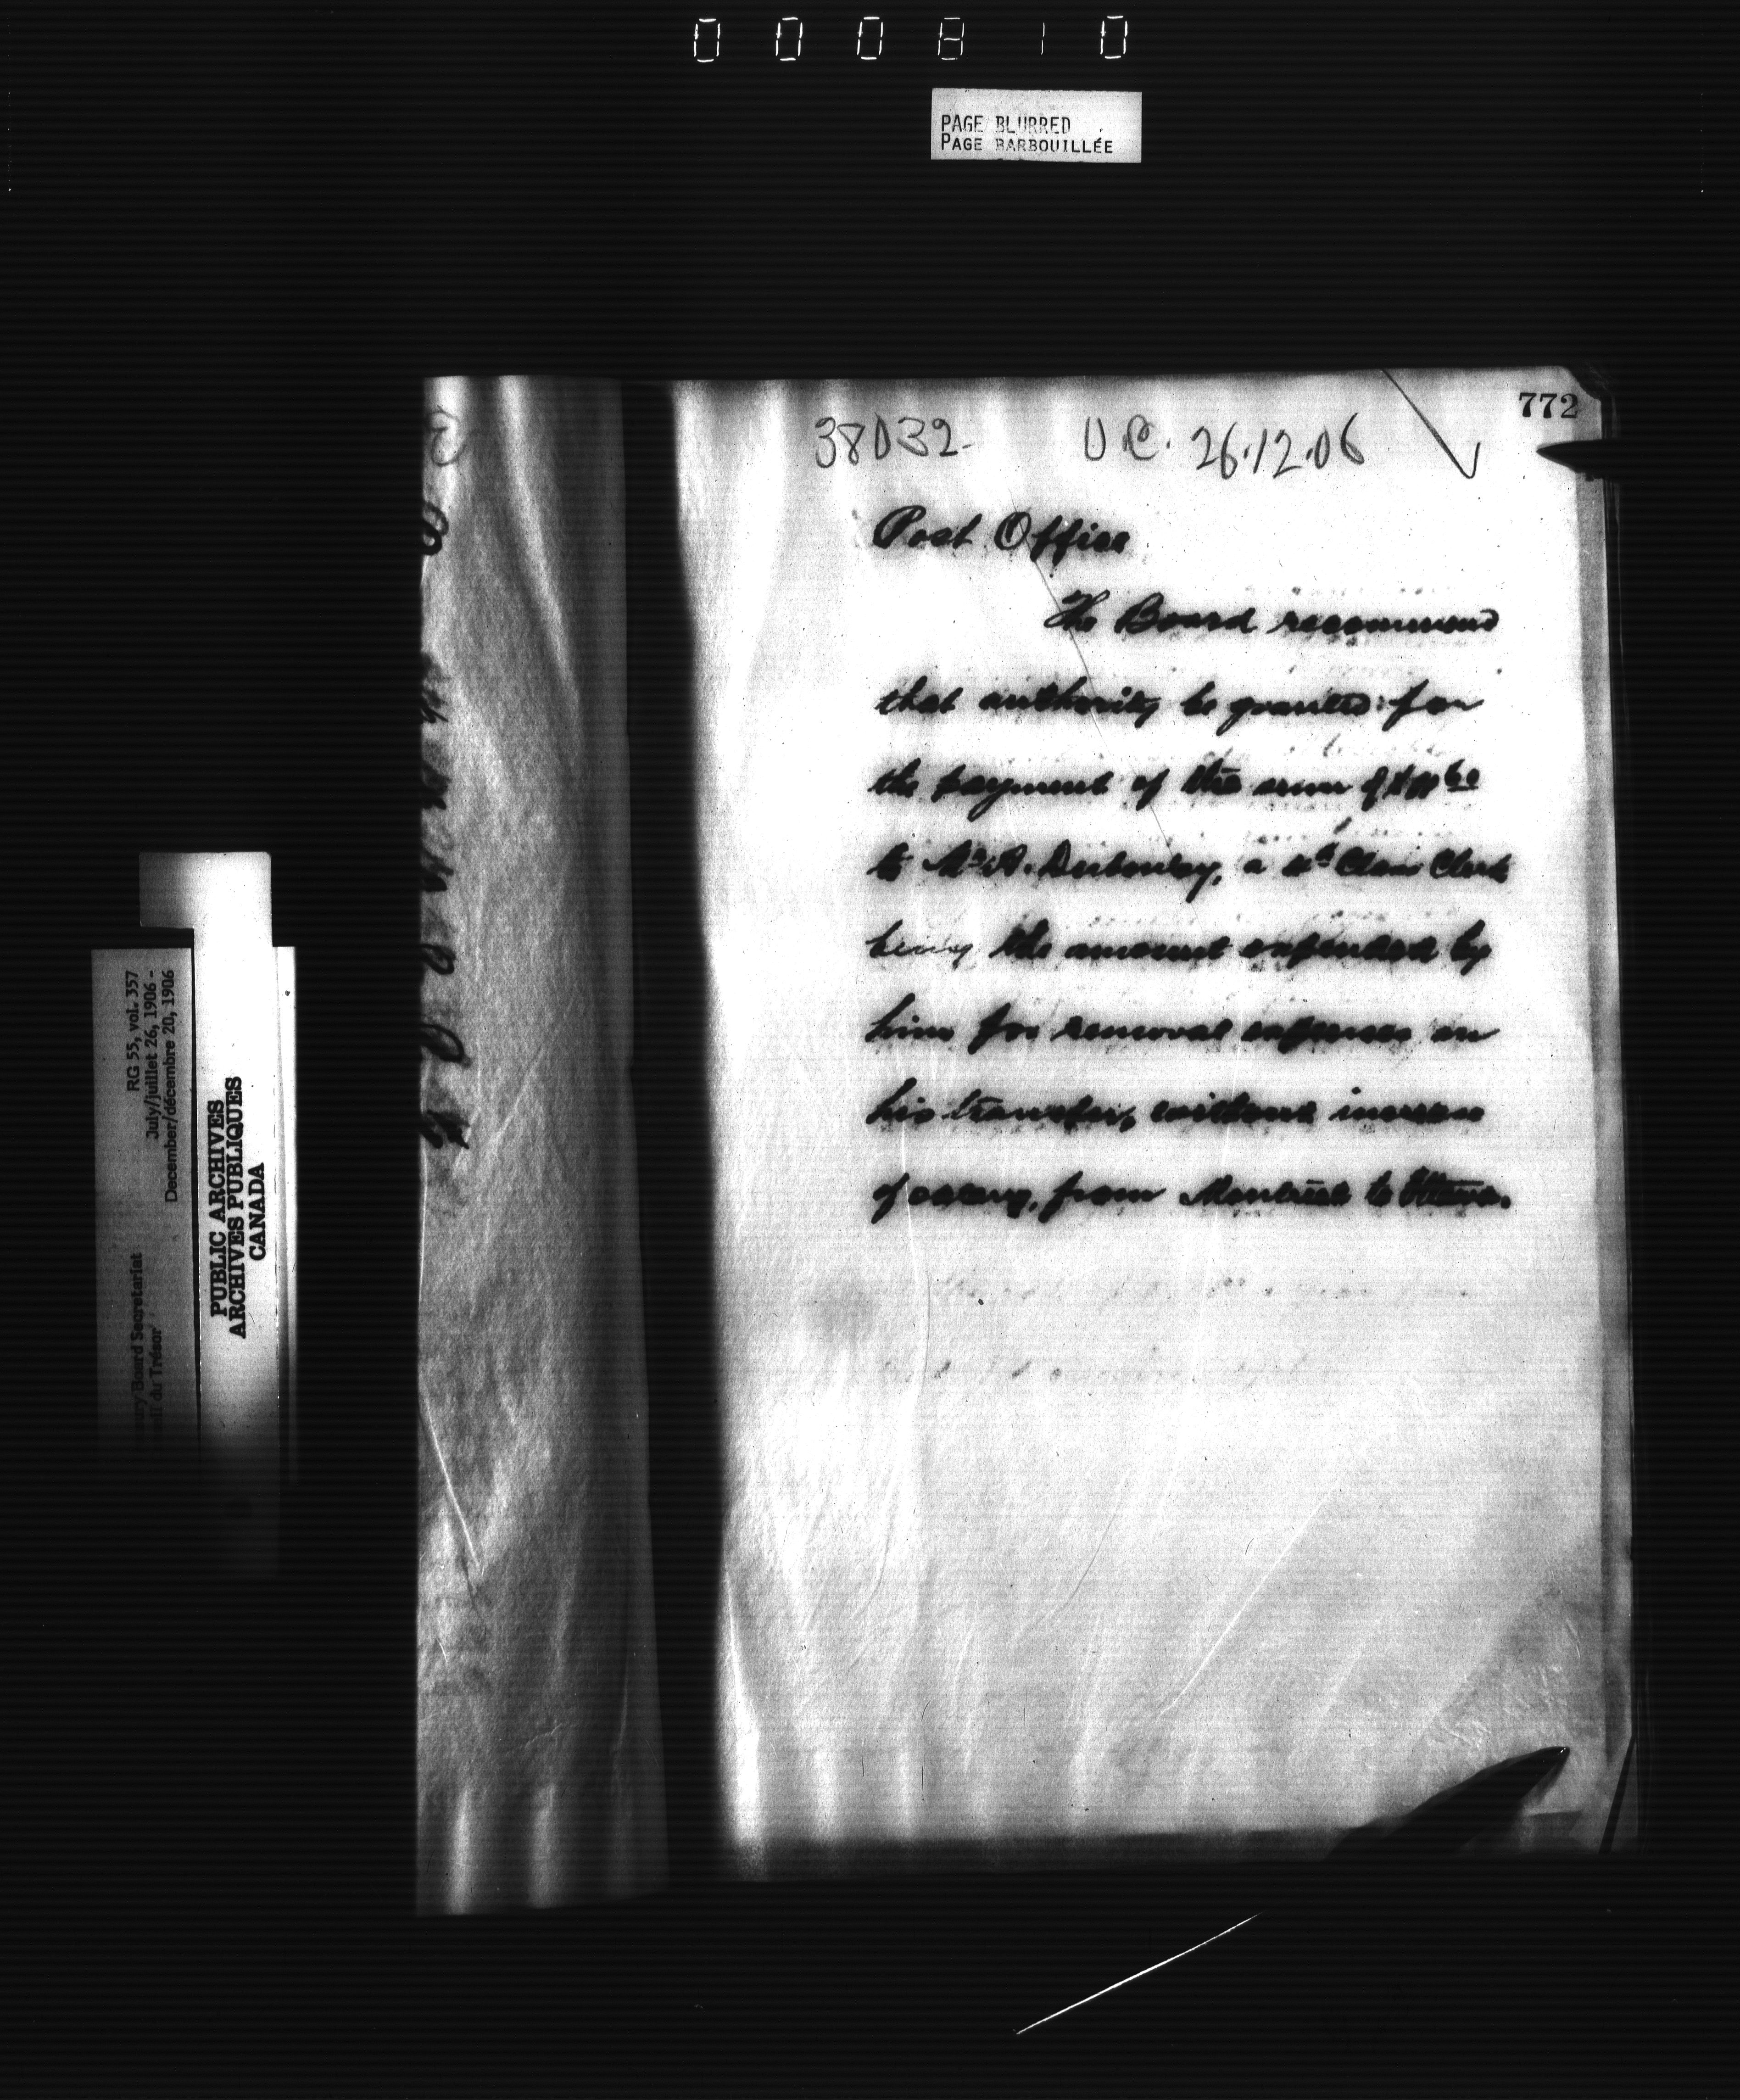 000810
PAGE BLURRED
PAGE BARBOUILLÉE
772
38D32 U.C. 26.12.06
Post Office
The Board recommend
that authority be granted for
the payment of the sum of
to Mr A. a 4th Class Clerk
being the amount expended by
him for removal expenses on
his transfer, without increase
of salary, from Montreal to Ottawa.
RG 55, vol. 357
July/juillet 26, 1906 -
December/décembre 20, 1906
Board Secretariat
du Trésor
PUBLIC ARCHIVES
ARCHIVES PUBLIQUES
CANADA